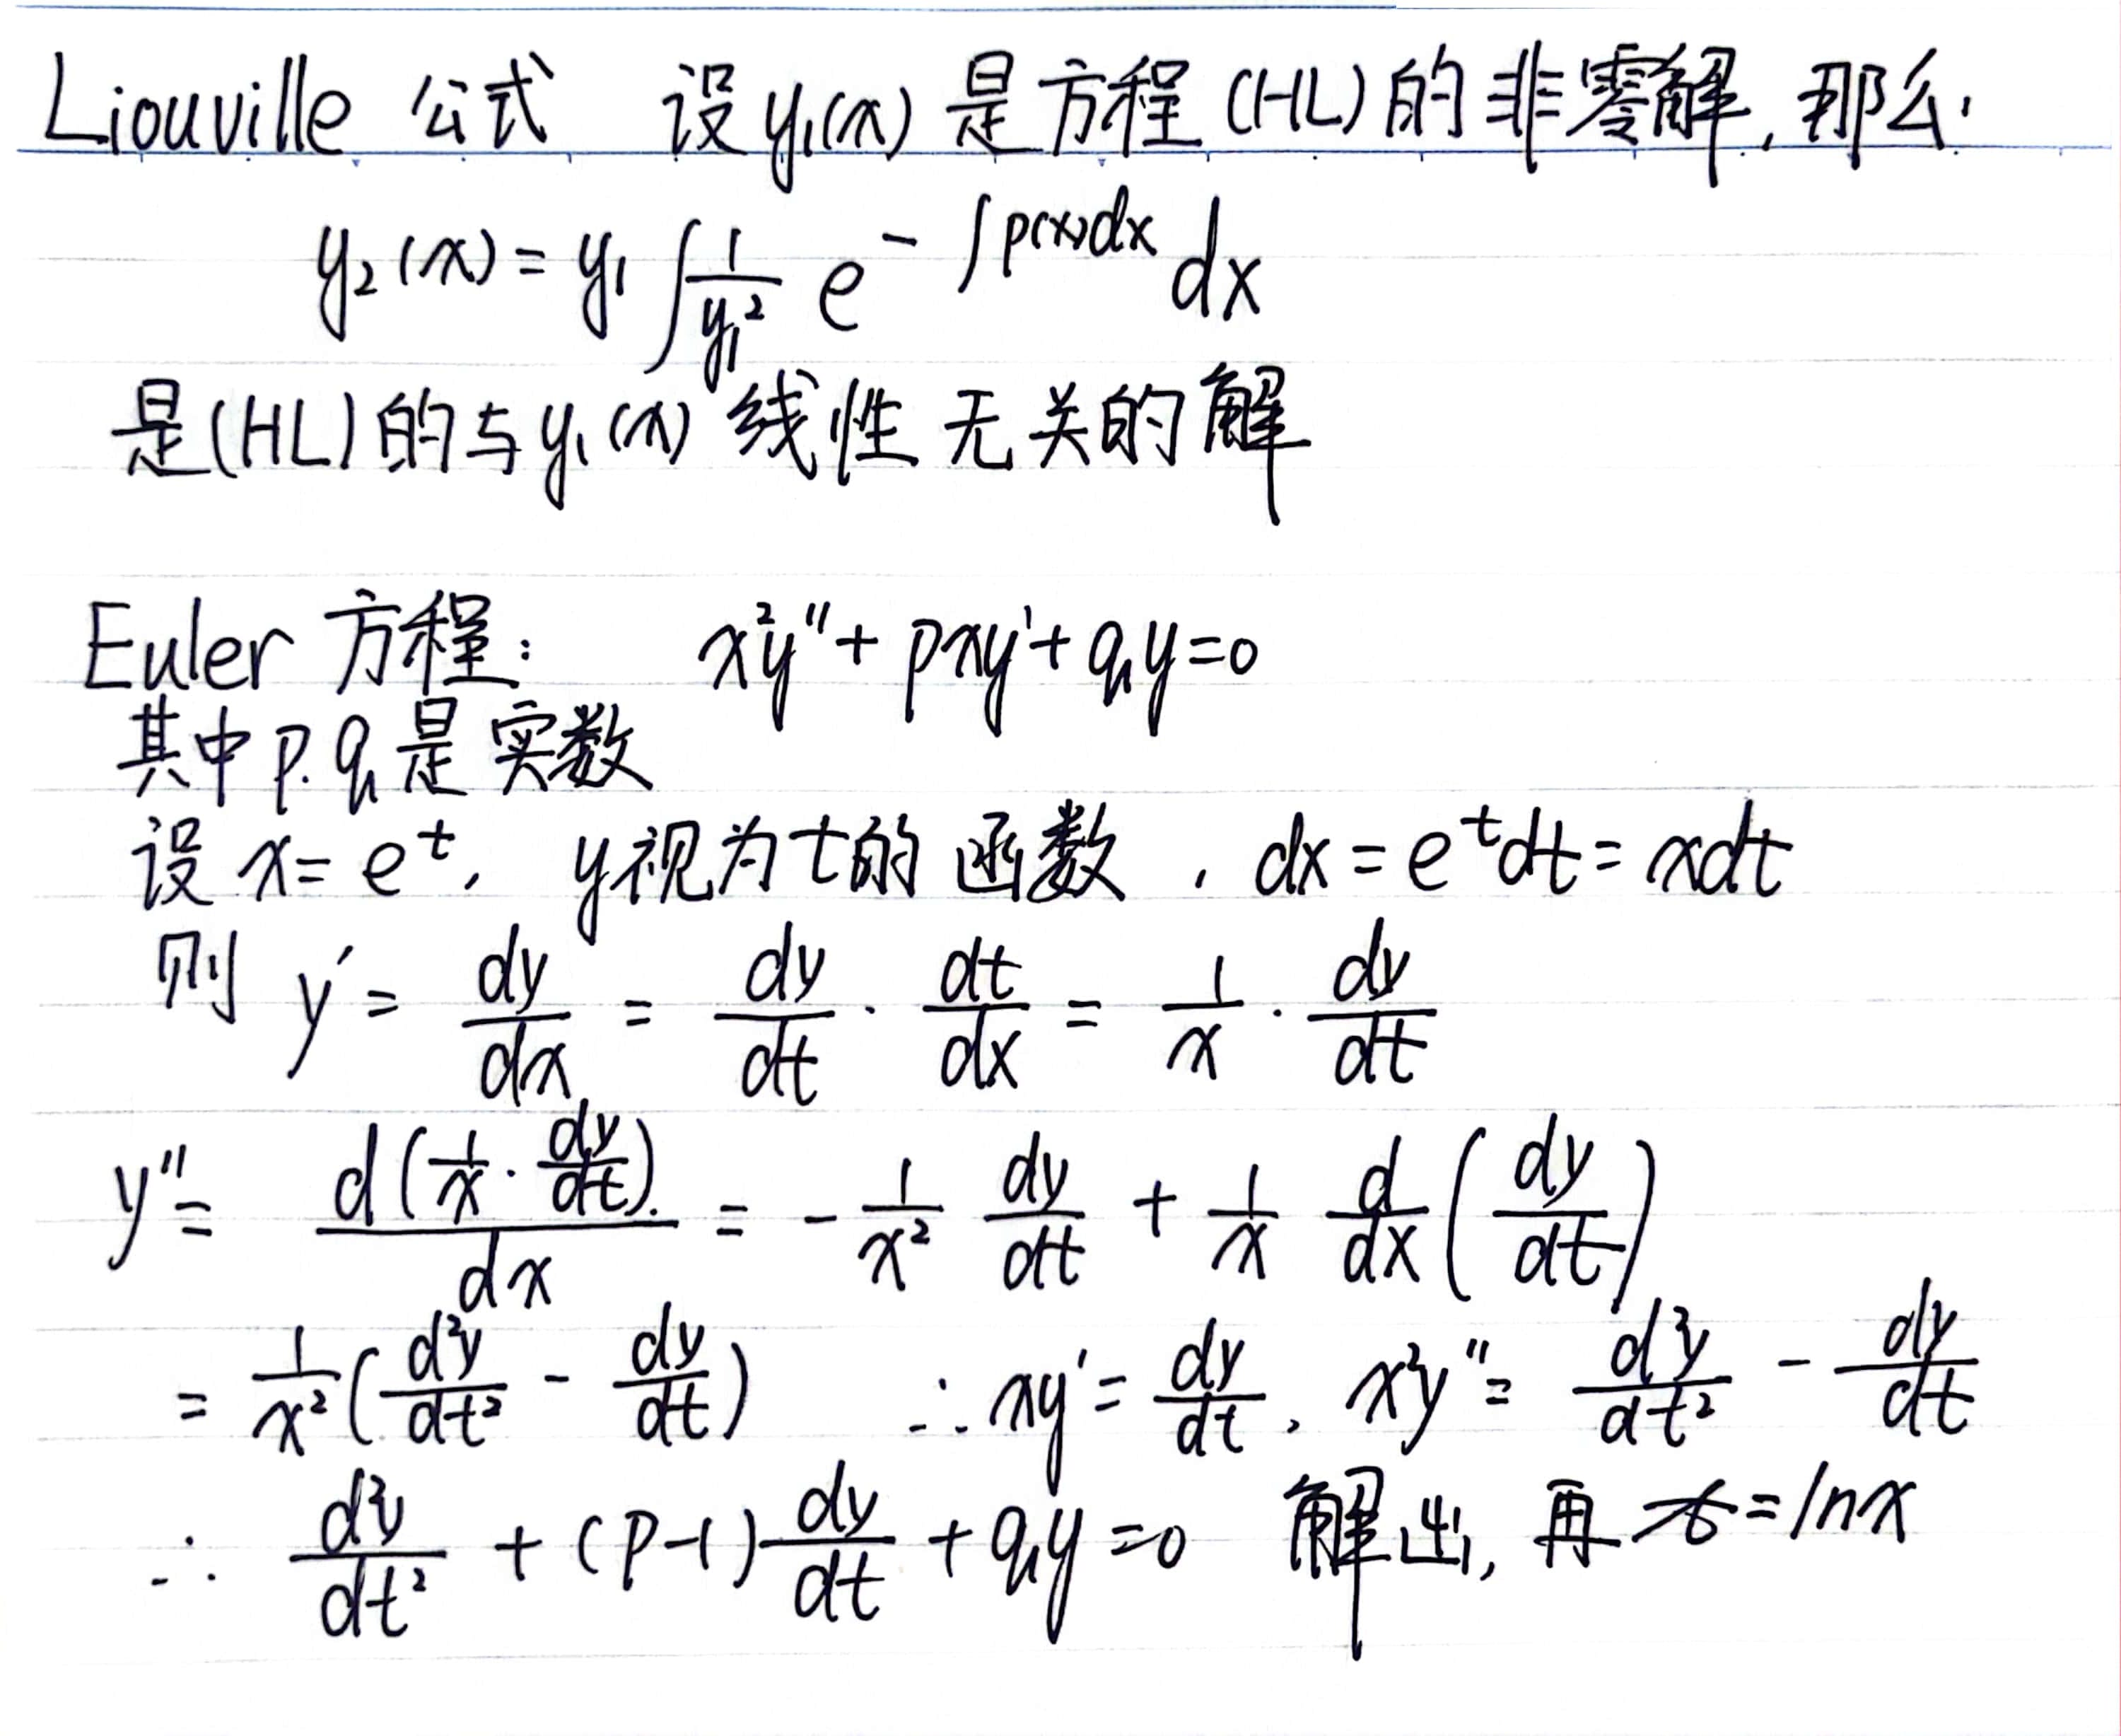 Liouville 公式 设 y₁(x) 是方程 (HL) 的非零解, 那么.
y₂(x) = y₁ ∫ \frac{1}{y₁²} e^{-∫p(x)dx} dx
是(HL)的与 y₁(x) 线性无关的解
Euler 方程: x²y'' + pxy' + qy = 0
其中 p. q 是实数
设 x = e^t, y视为 t 的函数, dx = e^t dt = xdt
则 y' = \frac{dy}{dx} = \frac{dy}{dt} · \frac{dt}{dx} = \frac{1}{x} · \frac{dy}{dt}
y'' = \frac{d(\frac{1}{x} · \frac{dy}{dt}).}{dx} = -\frac{1}{x²} \frac{dy}{dt} + \frac{1}{x} \frac{d}{dx}(\frac{dy}{dt})
= \frac{1}{x²}(\frac{d²y}{dt²} - \frac{dy}{dt}) ∴ xy' = \frac{dy}{dt}, x²y'' = \frac{d²y}{dt²} - \frac{dy}{dt}
∴ \frac{d²y}{dt²} + (p-1)\frac{dy}{dt} + qy = 0 解出, 再 t = lnx